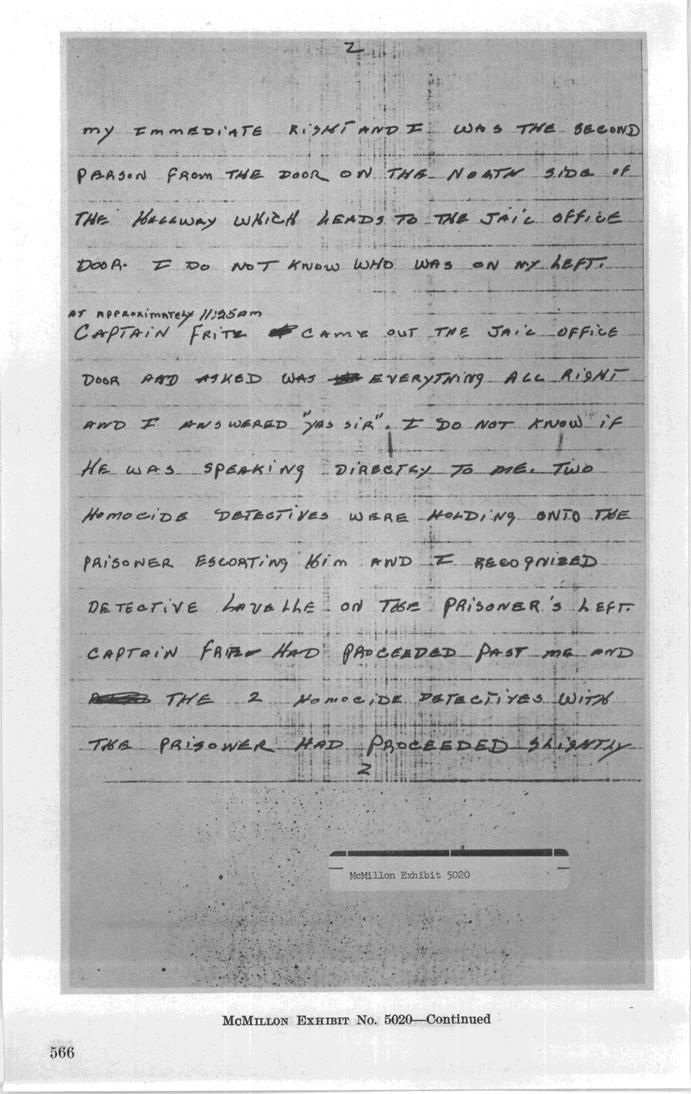 2
MY IMMEDIATE RIGHT AND I WAS THE SECOND
PERSON FROM THE DOOR ON THE NORTH SIDE OF
THE HALLWAY WHICH LEADS TO THE JAIL OFFICE
DOOR. I DO NOT KNOW WHO WAS ON MY LEFT.
AT APPROXIMATELY 11:25am
CAPTAIN FRITZ CAME OUT THE JAIL OFFICE
DOOR AND ASKED WAS EVERYTHING ALL RIGHT
AND I ANSWERED "YES SIR". I DO NOT KNOW IF
HE WAS SPEAKING DIRECTLY TO ME. TWO
HOMOCIDE DETECTIVES WERE HOLDING ONTO THE
PRISONER ESCORTING HIM AND I RECOGNIZED
DETECTIVE LAVELLE ON THE PRISONER'S LEFT.
CAPTAIN FRITZ HAD PROCEEDED PAST ME AND
THE 2 HOMOCIDE DETECTIVES WITH
THE PRISONER HAD PROCEEDED SLIGHTLY
2
McMillon Exhibit 5020
McMILLON EXHIBIT No. 5020—Continued
566